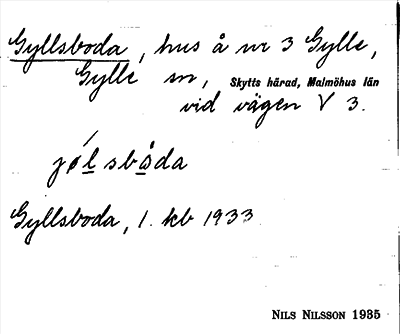 Gyllsboda, hus å nr 3 Gylle,
Gylle sn, Skytts härad, Malmöhus län
vid vägen V 3.
jǿlsbåda
Gyllsboda, 1. kb 1933
NILS NILSSON 1935